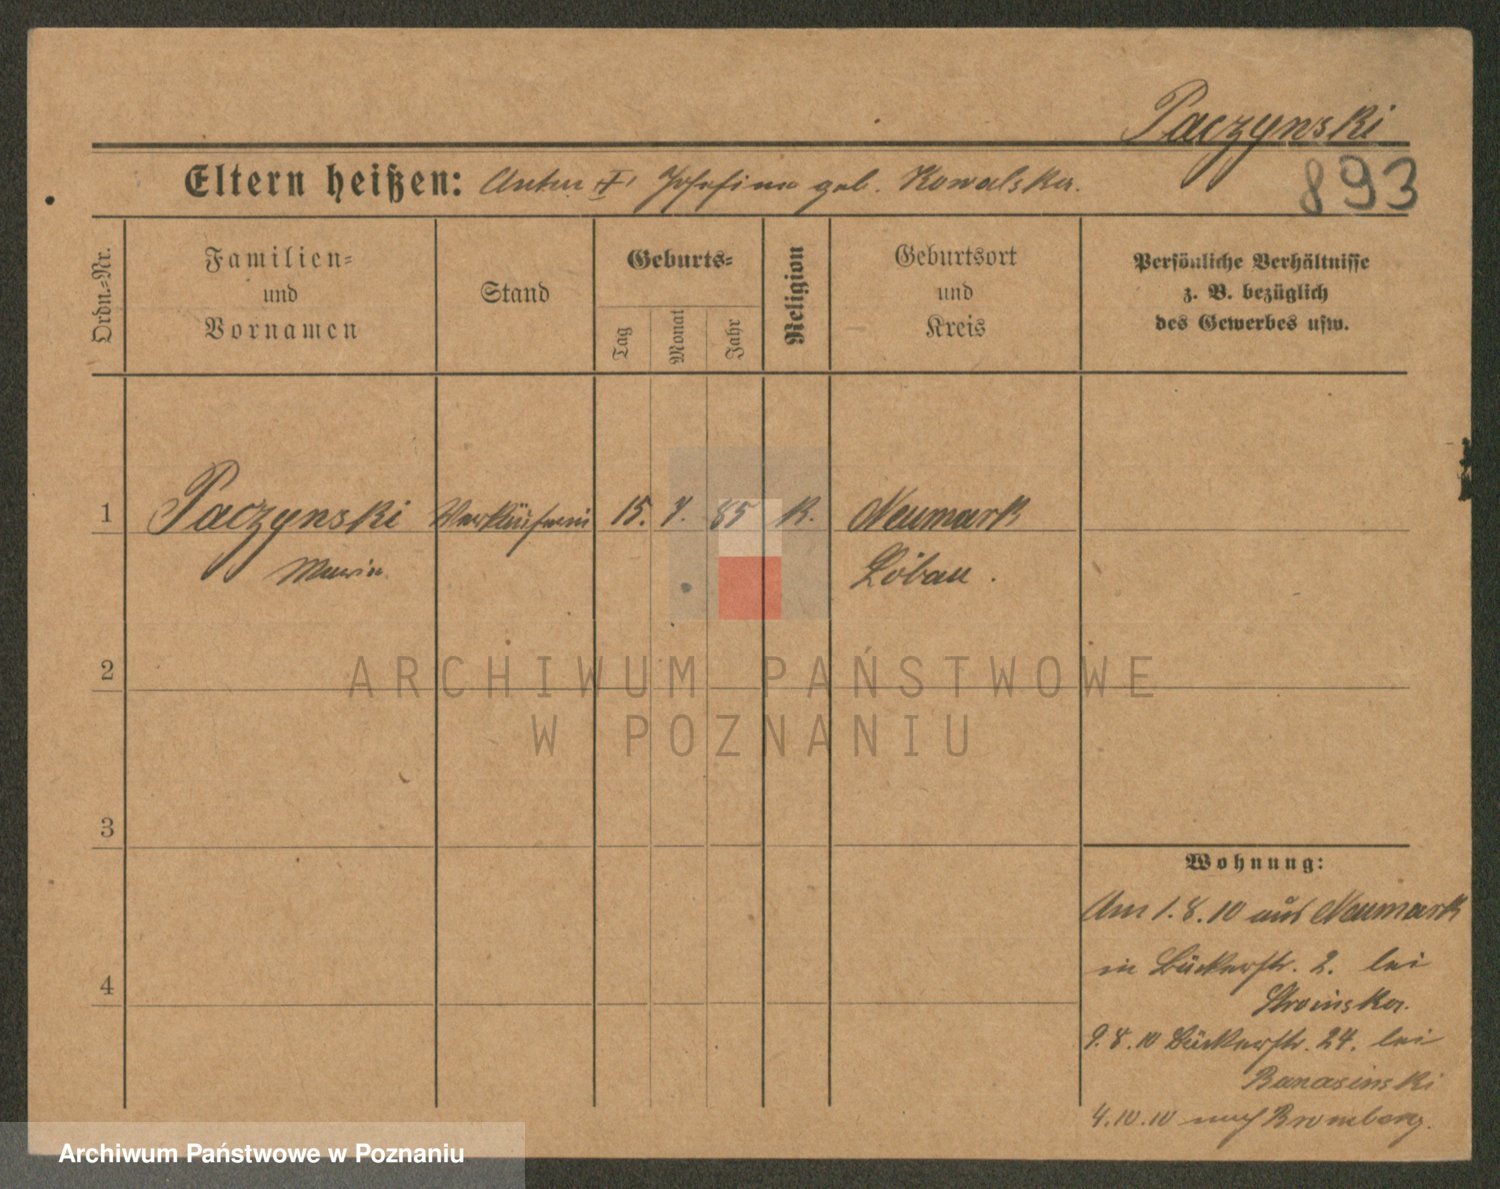 Paczynski
893
Eltern heißen: Anton †, Josefina geb. Kowalska.
Ordn.-Nr.
Familien-
und
Vornamen
Stand
Geburts-
Tag
Monat
Jahr
Religion
Geburtsort
und
Kreis
Persönliche Verhältnisse
z. B. bezüglich
des Gewerbes usw.
1 Paczynski Verkäuferin 15. 7. 85 K. Neumark
Maria Löbau.
ARCHIWUM PAŃSTWOWE
W POZNANIU
2
3
4
Wohnung:
Am 1.8.10 aus Neumark
in Bäckerstr. 2. bei
Stroinska.
9.8.10 Bäckerstr. 24. bei
Banasinski
4.10.10 nach Bromberg.
Archiwum Państwowe w Poznaniu